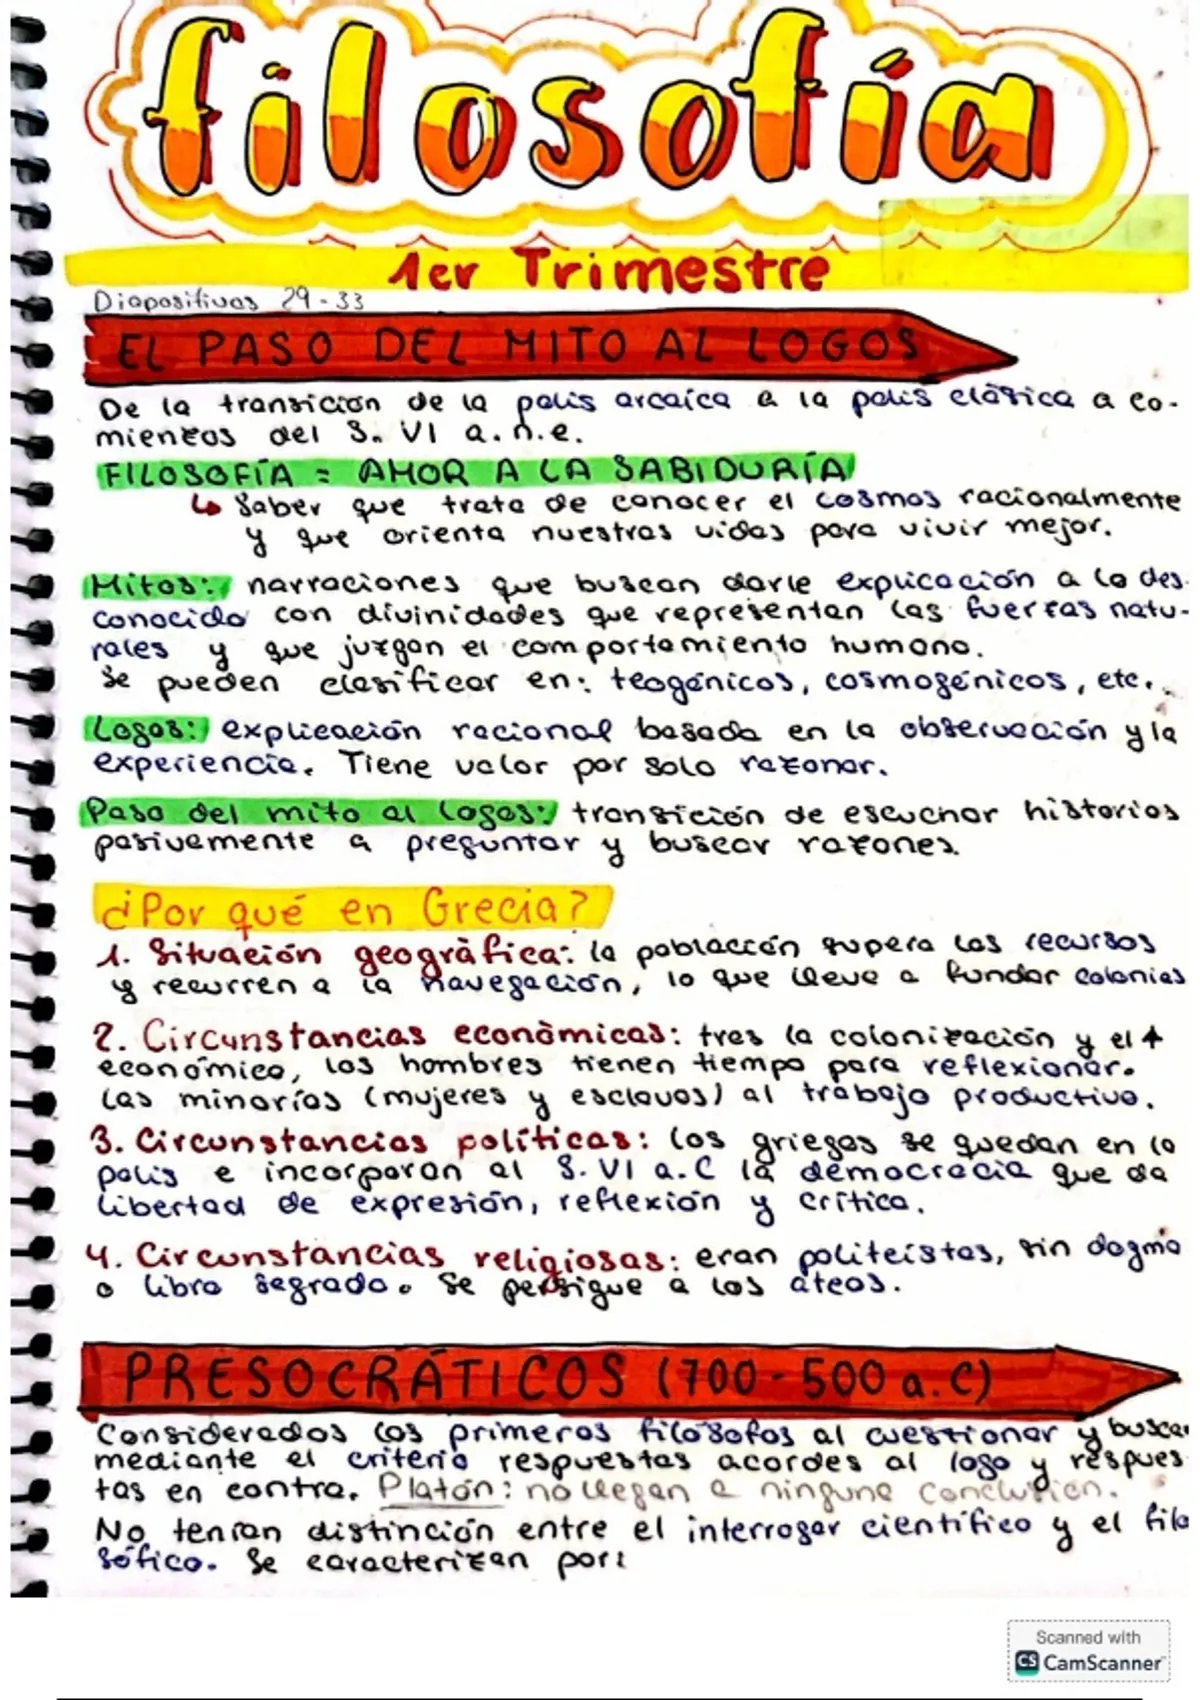 filosofía
1er Trimestre
Diapositivas 29-33
EL PASO DEL MITO AL LOGOS
De la transición de la polis arcaica a la polis clásica a co-
mienzos del S. VI a.n.e.
FILOSOFÍA = AMOR A LA SABIDURÍA
↳ Saber que trata de conocer el cosmos racionalmente
y que orienta nuestras vidas para vivir mejor.
Mitos: narraciones que buscan darle explicación a lo des-
conocido con divinidades que representan las fuerzas natu-
rales y que juzgan el comportamiento humano.
Se pueden clasificar en: teogónicos, cosmogónicos, etc.
Logos: explicación racional basada en la observación y la
experiencia. Tiene valor por solo razonar.
Paso del mito al logos: transición de escuchar historias
pasivamente a preguntar y buscar razones.
¿Por qué en Grecia?
1. Situación geogràfica: la población supera los recursos
y recurren a la navegación, lo que lleva a fundar colonias
2. Circunstancias econòmicas: tras la colonización y el ↑
económico, los hombres tienen tiempo para reflexionar.
Las minorías (mujeres y esclavos) al trabajo productivo.
3. Circunstancias políticas: los griegos se quedan en la
polis e incorporan al S. VI a.C la democracia que da
libertad de expresión, reflexión y crítica.
4. Circunstancias religiosas: eran politeístas, sin dogma
o libro sagrado. Se persigue a los ateos.
PRESOCRÁTICOS (700-500 a.C)
Considerados los primeros filósofos al cuestionar y buscar
mediante el criterio respuestas acordes al logo y respues
tas en contra. Platón: no llegan a ninguna conclusión.
No tenían distinción entre el interrogar científico y el filo
sófico. Se caracterizan por:
Scanned with
CS CamScanner